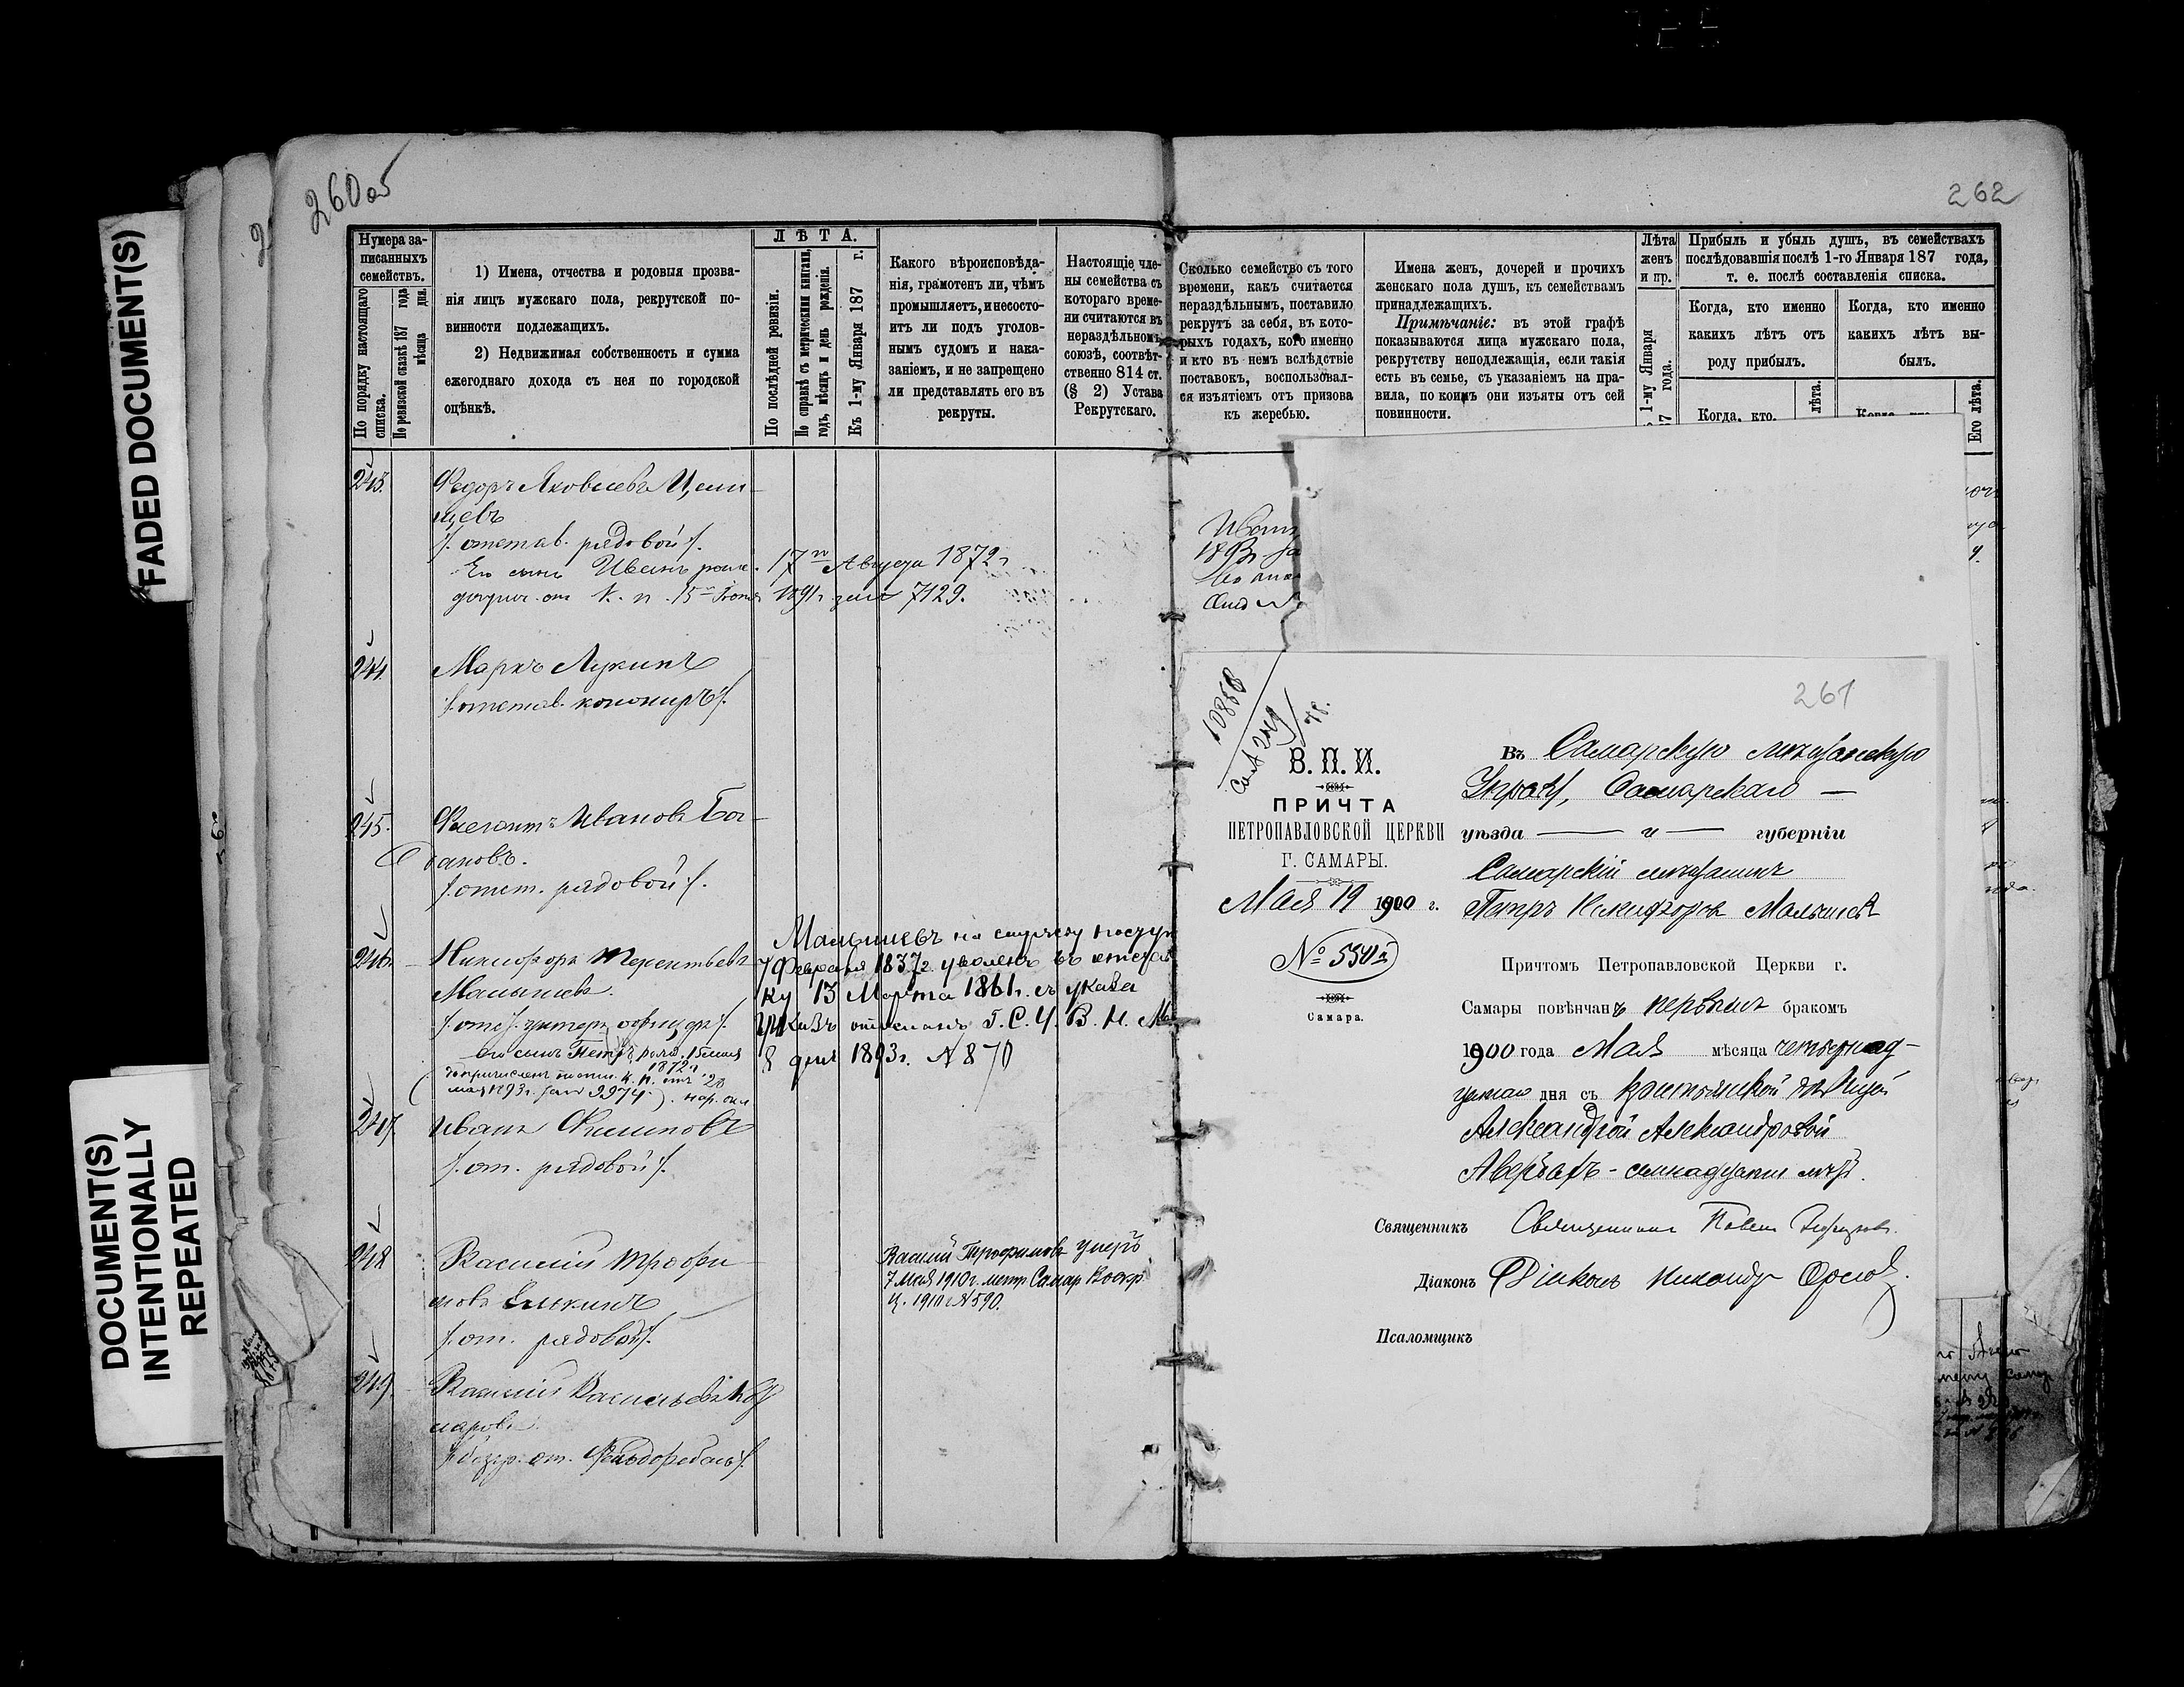 FADED DOCUMENT(S)
DOCUMENT(S)
INTENTIONALLY
REPEATED
260об
Нумера за-
писанныхъ
семействъ.
По порядку настоящаго
списка.
По ревизской сказкѣ 187 года
мѣсяца дня.
1) Имена, отчества и родовыя прозва-
нія лицъ мужскаго пола, рекрутской по-
винности подлежащихъ.
2) Недвижимая собственность и сумма
ежегоднаго дохода съ нея по городской
оцѣнкѣ.
ЛѢТА.
По послѣдней ревизіи.
По справкѣ съ метрическими книгами,
годъ, мѣсяцъ и день рожденія.
Къ 1-му Января 187 г.
Какого вѣроисповѣда-
нія, грамотенъ ли, чѣмъ
промышляетъ, и несосто-
итъ ли подъ уголов-
нымъ судомъ и нака-
заніемъ, и не запрещено
ли представлять его въ
рекруты.
Настоящіе чле-
ны семейства съ
котораго време-
ни считаются въ
нераздѣльномъ
союзѣ, соотвѣт-
ственно 814 ст.
(§ 2) Устава
Рекрутскаго.
243.
Федоръ Яковлевъ
щевъ
/. отстав. рядовой /.
Его сынъ Иванъ 17го Августа 1872 г
от К. п. 15го 1891 г за № 7129.
244.
Маркъ Лукинъ
/. отстав. /.
245.
Ивановъ Бог
дановъ.
/. отст. рядовой /.
246.
Никифоръ Терентьевъ
Малышевъ.
/. отс. унтеръ офицеръ /.
его сынъ Петръ, рожд. 15
1872 г.
К. п. отъ 28
мая 1893 г. за № 3974
Малышевъ на службу поступ
7 Февраля 1837 г. уволенъ въ отстав
ку 13 Марта 1861 г.
8 дня 1893 г. № 870
247.
Иванъ Филиповъ
/. от. рядовой /.
248
Василій Трофи
мовъ Елькинъ
/. от. рядовой /.
Василій Трофимовъ умеръ
7 Мая 1910 г. метр Самар Воскр
ц. 1910 г № 590.
249.
Василій Васильевъ
маровъ.
262
Сколько семейство съ того
времени, какъ считается
нераздѣльнымъ, поставило
рекрутъ за себя, въ кото-
рыхъ годахъ, кого именно
и кто въ немъ вслѣдствіе
поставокъ, воспользовал-
ся изъятіемъ отъ призова
къ жеребью.
Имена женъ, дочерей и прочихъ
женскаго пола душъ, къ семействамъ
принадлежащихъ.
Примѣчаніе: въ этой графѣ
показываются лица мужскаго пола,
рекрутству неподлежащія, если такія
есть въ семьѣ, съ указаніемъ на пра-
вила, по коимъ они изъяты отъ сей
повинности.
Лѣта
женъ
и пр.
1-му Января
года.
Прибыль и убыль душъ, въ семействахъ
послѣдовавшія послѣ 1-го Января 187 года,
т. е. послѣ составленія списка.
Когда, кто именно
какихъ лѣтъ отъ
роду прибылъ.
Когда, кто именно
какихъ лѣтъ вы-
былъ.
Когда, кто.
лѣта.
Его лѣта.
261
10858
В. П. И.
ПРИЧТА
ПЕТРОПАВЛОВСКОЙ ЦЕРКВИ
Г. САМАРЫ.
Мая 19 1900 г.
№ 550
Самара.
Въ Самарскую мѣщанскую
Управу, Самарскаго —
уѣзда — и — губерніи
Самарскій мѣщанинъ
Петръ Никифоровъ Малышевъ
Причтомъ Петропавловской Церкви г.
Самары повѣнчанъ первымъ бракомъ
1900 года Мая мѣсяца четырнад-
цатаго дня съ крестьянской дѣвицей
Александрой Александровой
семнадцати лѣтъ.
Священникъ Священникъ Павелъ
Діаконъ Діаконъ Никандръ Орловъ.
Псаломщикъ